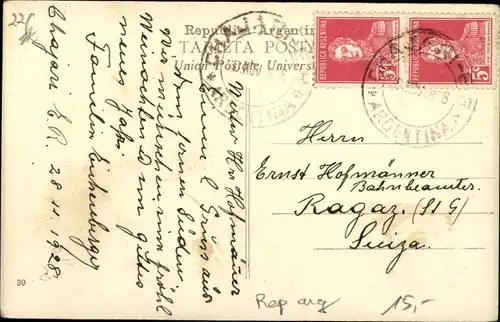 22f
Republica Argentina
TARJETA POSTAL
Union Postale Universelle
REPUBLICA ARGENTINA
5
REPUBLICA ARGENTINA
5
CHAJARI
ARGENTINA
ARGENTINA
Werter Hr Hofmänner
Einen l Gruss aus
dem fernen Süden
Wir wünschen euch fröhl
Weinachten u ein gutes
neues Jahr
Familien Eichenberger
Chajari E. R. 28 11. 1928.
Herrn
Ernst Hofmänner
Bahnbeamter.
Ragaz. (St G)
Suiza.
39
Rep arg
15,-